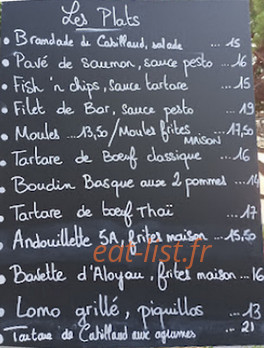 Les Plats
• Brandade de Cabillaud, salade ... 15
• Pavé de saumon, sauce pesto ... 16
• Fish 'n chips, sauce tartare ... 15
• Filet de Bar, sauce pesto ... 19
• Moules ... 13,50 / Moules frites ... 17,50
MAISON
• Tartare de Bœuf classique ... 16
• Boudin Basque aux 2 pommes ... 14
• Tartare de bœuf Thaï ... 17
• Andouillette 5A, frites maison ... 15,50
eat-list.fr
• Bavette d'Aloyau, frites maison ... 16
• Lomo grillé, piquillos ... 13
• Tartare de Cabillaud aux agrumes ... 21